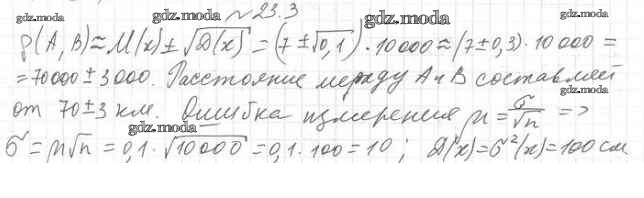 gdz.moda № 23.3 gdz.moda gdz.moda
ρ(A, B) ≈ M(x) ± √D(x) = (7 ± √0,1) · 10000 ≈ (7 ± 0,3) · 10 000 =
= 70000 ± 3000. Расстояние между А и В составляет
gdz.moda
от 70 ± 3 км. Ошибка измерения μ = σ/√n =>
gdz.moda
σ = μ√n = 0,1 · √10000 = 0,1 · 100 = 10 ; D(x) = σ²(x) = 100 см